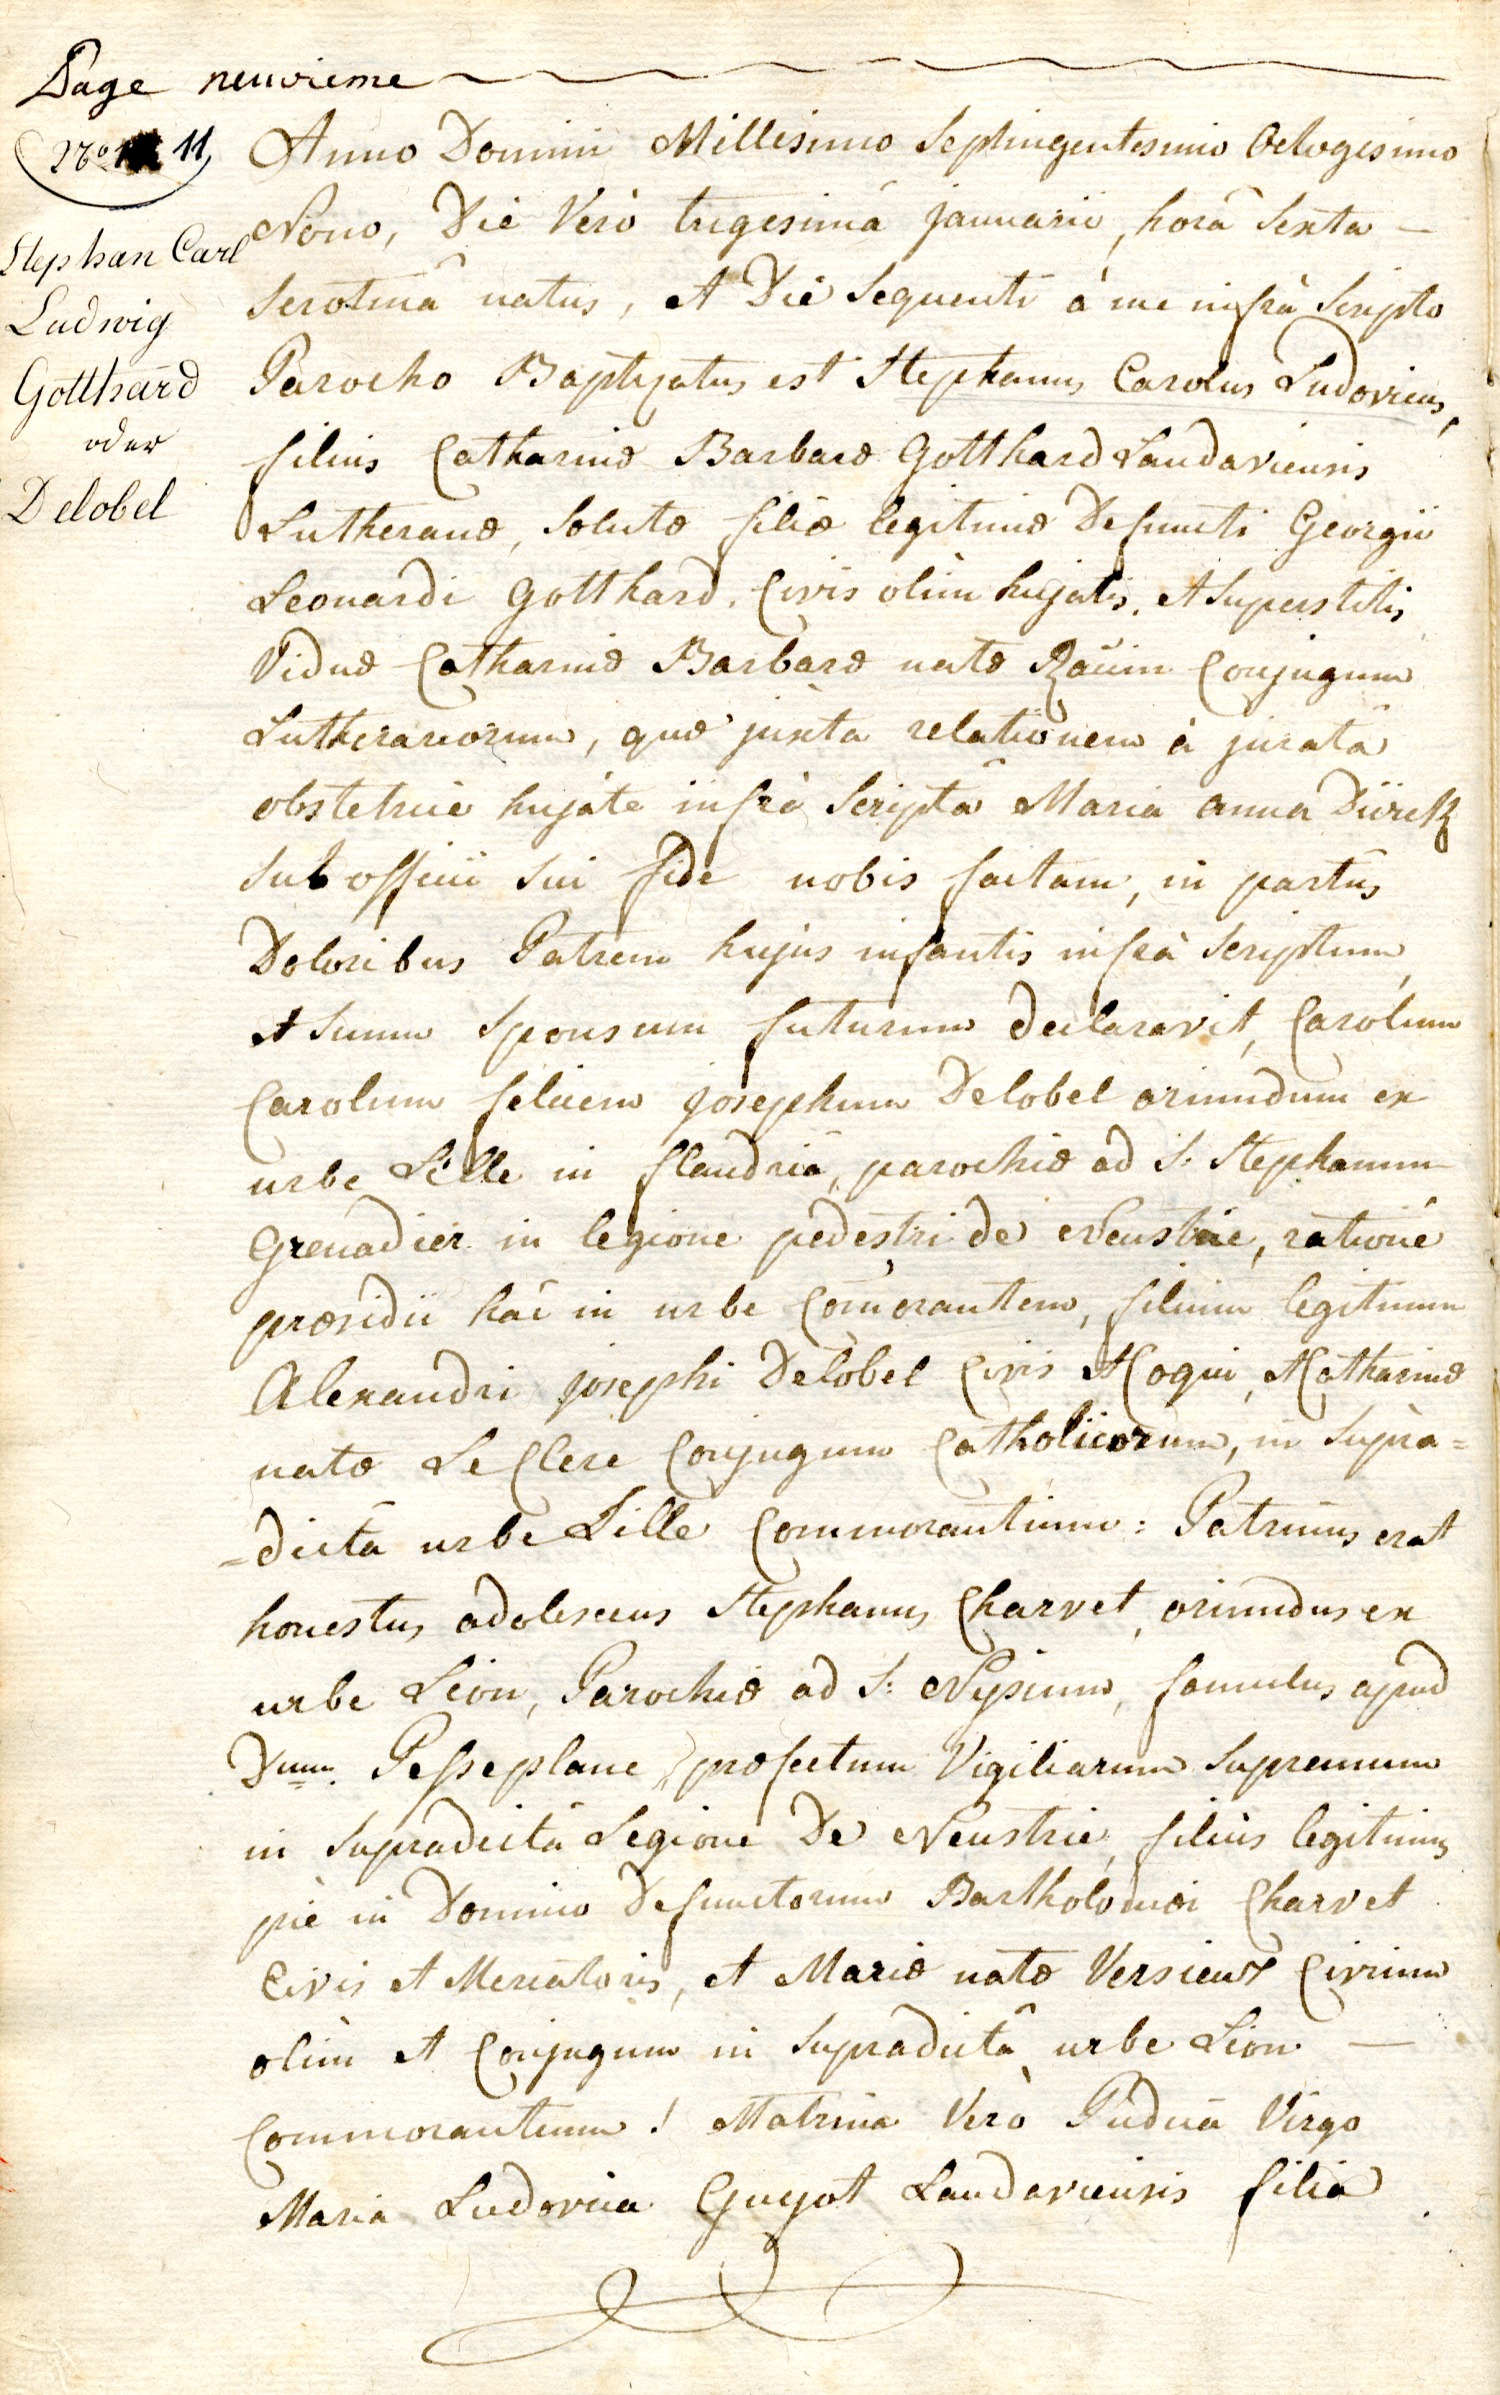 Page neuvieme
No 11
Stephan Carl
Ludwig
Gotthard
oder
Delobel
Anno Domini Millesimo Septingentesimo Octogesimo
Nono, Die Verò trigesimâ januarii, horâ Sexta —
Serotinâ natus, et Die Sequenti à me infrà Scripto
Parocho Baptizatus est Stephanus Carolus Ludovicus,
filius Catharinæ Barbaræ Gotthard Landaviensis
Lutheranæ, Solutæ filiæ legitimæ Defuncti Georgii
Leonardi Gotthard, Civis olim hujatis, et Superstitis
Viduæ Catharinæ Barbaræ natæ Conjugum
Lutheranorum, quæ juxta relationem à juratâ
obstetrice hujate infrà Scriptâ Maria anna Dürck
Sub officii Sui fide nobis factam, in partus
Doloribus Patrem hujus infantis infrà Scriptum,
et Suum Sponsum futurum declaravit, Carolum
Carolum felicem josephum Delobel oriundum ex
urbe Lille in flandriâ, parochiæ ad S: Stephanum
Grenadier in legione pedestri de Neustrie, ratione
præsidii hâc in urbe Comorantem, filium legitimum
Alexandri josephi Delobel Civis et Coqui, et Catharinæ
natæ Le Clere Conjugum Catholicorum, in Supra=
=dictâ urbe Lille Commorantium: Patrinus erat
honestus adolescens Stephanus Charvet, oriundus ex
urbe Lion, Parochiæ ad S: Nysium, famulus apud
Dnum. Pesseplane, præfectum Vigiliarum Supremum
in Supradictâ Legione De Neustrie, filius legitimus
piè in Domino Defunctorum Bartholomæi Charvet
Civis et Mercatoris, et Mariæ natæ Versieux Civium
olim et Conjugum in Supradictâ urbe Lion —
Commorantium! Matrina Verò Pudica Virgo
Maria Ludovica Guyot Landaviensis filia